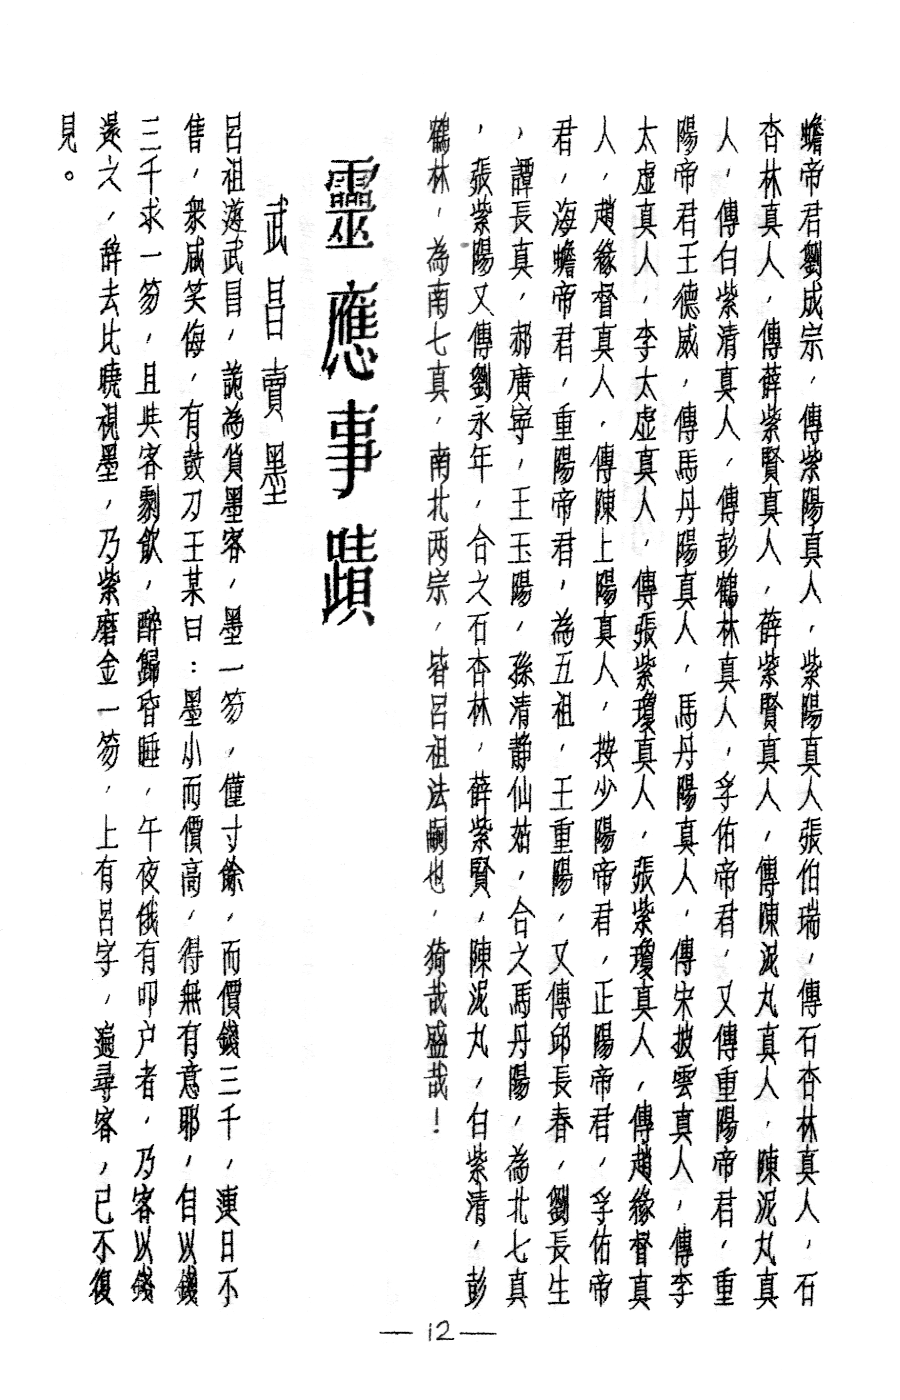 蟾帝君劉成宗，傳紫陽真人，紫陽真人張伯瑞，傳石杏林真人，石
杏林真人，傳薛紫賢真人，薛紫賢真人，傳陳泥丸真人，陳泥丸真
人，傳白紫清真人，傳彭鶴林真人，孚佑帝君，又傳重陽帝君，重
陽帝君王德威，傳馬丹陽真人，馬丹陽真人，傳宋披雲真人，傳李
太虛真人，李太虛真人，傳張紫瓊真人，張紫瓊真人，傳趙緣督真
人，趙緣督真人，傳陳上陽真人，按少陽帝君，正陽帝君，孚佑帝
君，海蟾帝君，重陽帝君，為五祖，王重陽，又傳邱長春，劉長生
，譚長真，郝廣寧，王玉陽，孫清靜仙姑，合之馬丹陽，為北七真
，張紫陽又傳劉永年，合之石杏林，薛紫賢，陳泥丸，白紫清，彭
鶴林，為南七真，南北两宗，皆呂祖法嗣也，猗哉盛哉！
靈應事蹟
武昌賣墨
呂祖遊武昌，詭為貨墨客，墨一笏，僅寸餘，而價錢三千，連日不
售，衆咸笑侮，有鼓刀王某曰：墨小而價高，得無有意耶，自以錢
三千求一笏，且與客劇飲，醉歸昏睡，午夜俄有叩户者，乃客以錢
還之，辞去比曉視墨，乃紫磨金一笏，上有呂字，遍尋客，已不復
見。
— 12 —